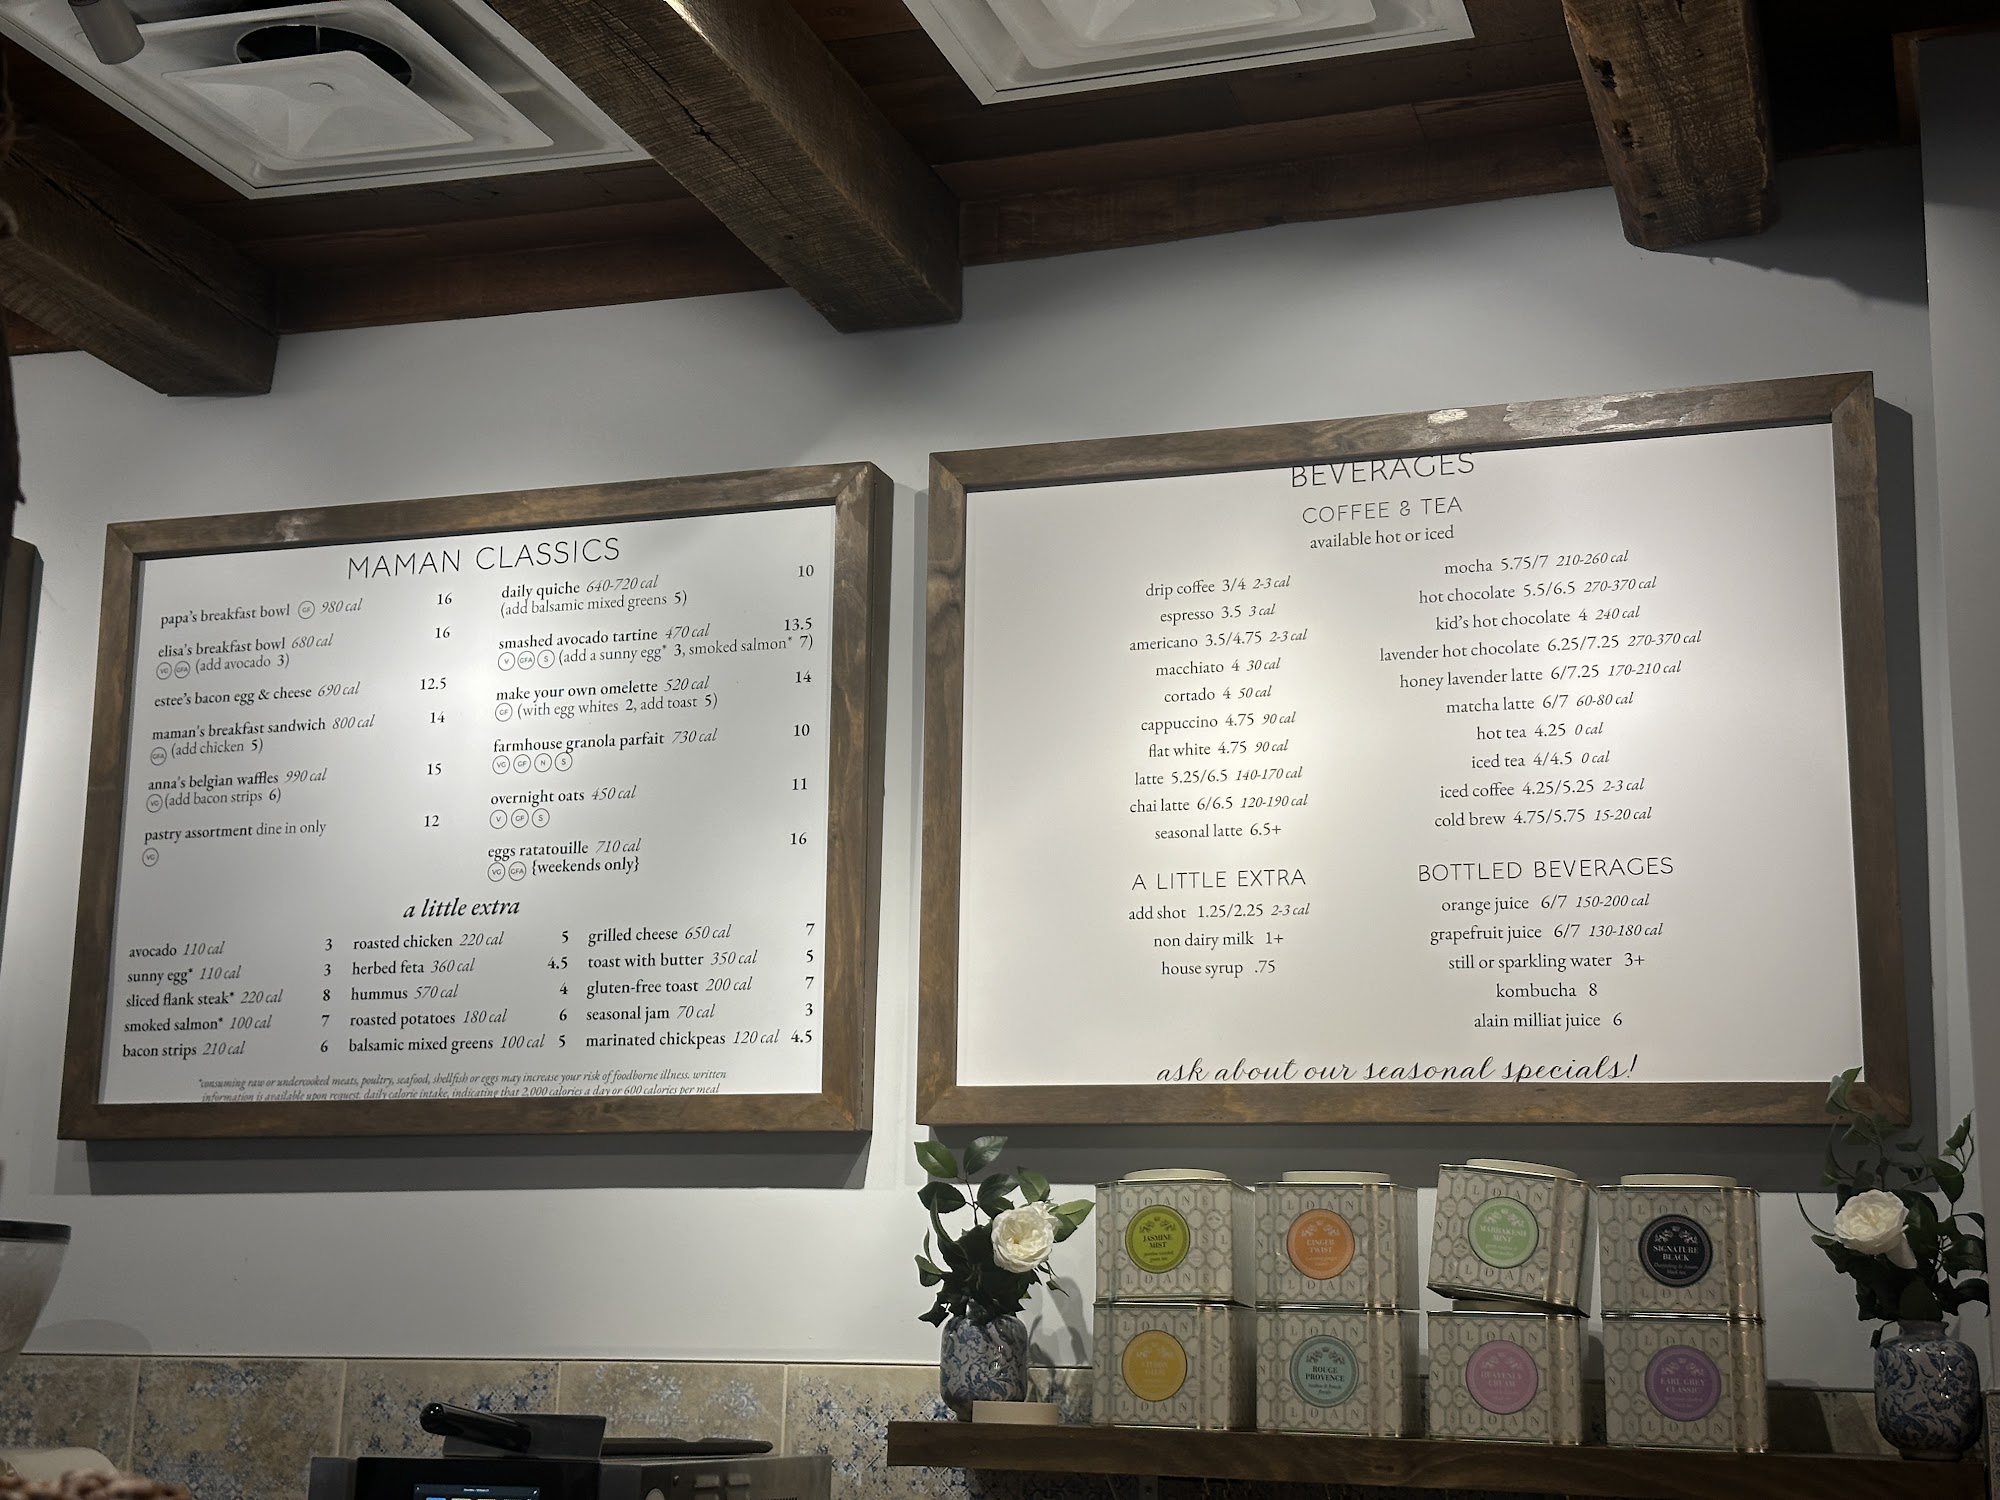 MAMAN CLASSICS
papa's breakfast bowl GF 980 cal 16
elisa's breakfast bowl 680 cal 16
VG GFA (add avocado 3)
estee's bacon egg & cheese 690 cal 12.5
maman's breakfast sandwich 800 cal 14
GFA (add chicken 5)
anna's belgian waffles 990 cal 15
VG (add bacon strips 6)
pastry assortment dine in only 12
VG
daily quiche 640-720 cal 10
(add balsamic mixed greens 5)
smashed avocado tartine 470 cal 13.5
V GFA S (add a sunny egg* 3, smoked salmon* 7)
make your own omelette 520 cal 14
GF (with egg whites 2, add toast 5)
farmhouse granola parfait 730 cal 10
VG GF N S
overnight oats 450 cal 11
V GF S
eggs ratatouille 710 cal 16
VG GFA {weekends only}
a little extra
avocado 110 cal 3
sunny egg* 110 cal 3
sliced flank steak* 220 cal 8
smoked salmon* 100 cal 7
bacon strips 210 cal 6
roasted chicken 220 cal 5
herbed feta 360 cal 4.5
hummus 570 cal 4
roasted potatoes 180 cal 6
balsamic mixed greens 100 cal 5
grilled cheese 650 cal 7
toast with butter 350 cal 5
gluten-free toast 200 cal 7
seasonal jam 70 cal 3
marinated chickpeas 120 cal 4.5
*consuming raw or undercooked meats, poultry, seafood, shellfish or eggs may increase your risk of foodborne illness. written
information is available upon request. daily calorie intake, indicating that 2,000 calories a day or 600 calories per meal
BEVERAGES
COFFEE & TEA
available hot or iced
drip coffee 3/4 2-3 cal
espresso 3.5 3 cal
americano 3.5/4.75 2-3 cal
macchiato 4 30 cal
cortado 4 50 cal
cappuccino 4.75 90 cal
flat white 4.75 90 cal
latte 5.25/6.5 140-170 cal
chai latte 6/6.5 120-190 cal
seasonal latte 6.5+
mocha 5.75/7 210-260 cal
hot chocolate 5.5/6.5 270-370 cal
kid's hot chocolate 4 240 cal
lavender hot chocolate 6.25/7.25 270-370 cal
honey lavender latte 6/7.25 170-210 cal
matcha latte 6/7 60-80 cal
hot tea 4.25 0 cal
iced tea 4/4.5 0 cal
iced coffee 4.25/5.25 2-3 cal
cold brew 4.75/5.75 15-20 cal
A LITTLE EXTRA
add shot 1.25/2.25 2-3 cal
non dairy milk 1+
house syrup .75
BOTTLED BEVERAGES
orange juice 6/7 150-200 cal
grapefruit juice 6/7 130-180 cal
still or sparkling water 3+
kombucha 8
alain milliat juice 6
ask about our seasonal specials!
SLOANE
JASMINE
MIST
SLOANE
GINGER
TWIST
SLOANE
MARRAKESH
MINT
SLOANE
SIGNATURE
BLACK
SLOANE
SLOANE
ROUGE
PROVENCE
SLOANE
HEAVENLY
CREAM
SLOANE
EARL GREY
CLASSIC